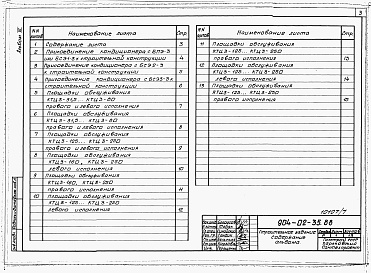 3
Альбом
NN листов
Наименование листа
Стр.
1 Содержание листа 3
2 Присоединение кондиционера с БТЭ-3
или БСЭ1-3 к строительной конструкции 4
3 Присоединение кондиционера с БСЭ2-3
к строительной конструкции 5
4 Присоединение кондиционера с БСЭ3-3 к
строительной конструкции 6
5 Площадки обслуживания
КТЦ3-31,5... КТЦ3-80
правого и левого исполнения 7
6 Площадки обслуживания
КТЦ3-31,5... КТЦ3-80
правого и левого исполнения 8
7 Площадки обслуживания
КТЦ3-125... КТЦ3-250
правого и левого исполнения 9
8 Площадки обслуживания
КТЦ3-160, КТЦ3-250
левого исполнения 10
9 Площадки обслуживания
КТЦ3-160, КТЦ3-250
правого исполнения 11
10 Площадки обслуживания
КТЦ3-125... КТЦ3-250
левого исполнения 12
NN листов
Наименование листа
Стр.
11 Площадки обслуживания
КТЦ3-125... КТЦ3-250
правого исполнения 13
12 Площадки обслуживания
КТЦ3-125... КТЦ3-250
левого исполнения 14
13 Площадки обслуживания
КТЦ3-125... КТЦ3-250
правого исполнения 15
904-02-35.86
Строительное задание
Содержание
альбома